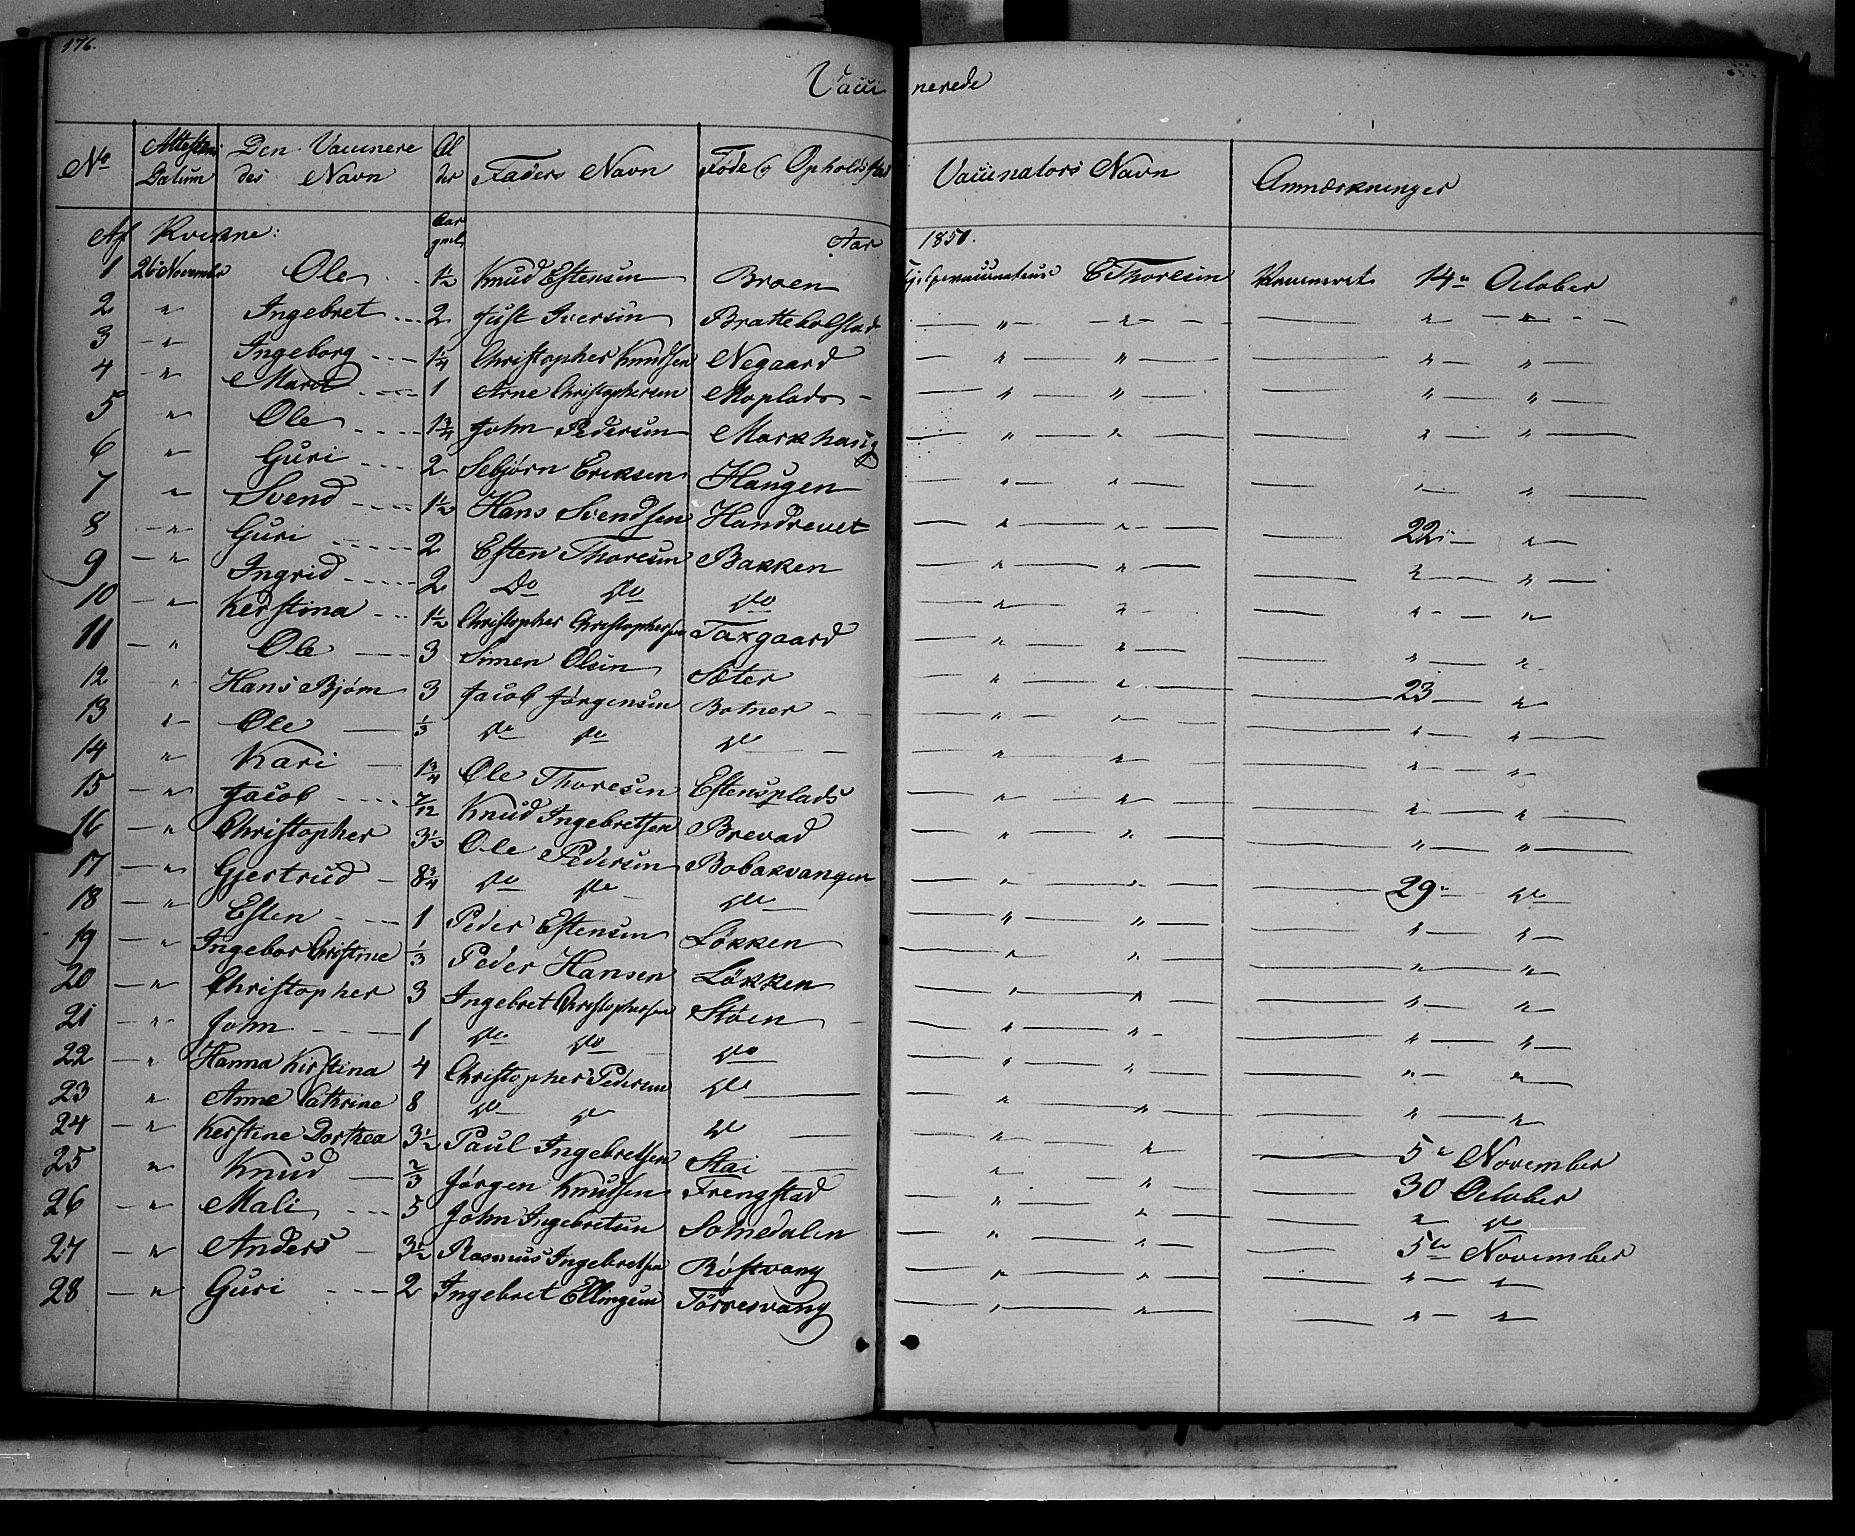 176.
Vacci nerede
No Attestens Datum Den Vaccinere des Navn Al der Faders Navn Føde og Opholds sted Vaccinators Navn Anmærkninger
Af Kvikne: Aar Aar 1850.
1 26 November Ole 1½ Knud Estensen Broen Hjelpevaccinateur E Thoresen Vaccineret 14de October
2 " Ingebret 2 Just Iversen " " " "
3 " Ingeborg 1¼ Christopher Knudsen Negaard " " " "
4 " Marit 1 Arne Christophersen Moplads " " " "
5 " Ole 1¾ John Pedersen Markhaug " " " "
6 " Guri 2 Sebjørn Eriksen Haugen " " " "
7 " Svend 1½ Hans Svendsen " " 22 "
8 " Guri 2 Esten Thoresen Bakken " " " "
9 " Ingrid 2 Do Do Do " " " "
10 " Kerstina 1½ Christopher Christophersen Taxgaard " " " "
11 " Ole 3 Simen Olsen Sæter " " 23 "
12 " Hans Bjørn 3 Jacob Jørgensen Botner " " " "
13 " Ole ⅓ Do Do Do " " " "
14 " Kari 1¾ Ole Thoresen Estensplads " " " "
15 " Jacob 7/12 Knud Ingebretsen Brevad " " " "
16 " Christopher 3½ Ole Pedersen Bobakvangen " " 29 Do
17 " Gjertrud 8¾ Do Do Do " " " "
18 " Esten 1 Peder Estensen Løkken " " " "
19 " Ingebor Christine ⅓ Peder Hansen Løkken " " " "
20 " Christopher 3 Ingebret Christophersen Støen " " " "
21 " John 1 Do Do Do " " " "
22 " Hanna Kirstina 4 Christopher Pedersen Do " " " "
23 " Anne Cathrine 8 Do Do Do " " 5te November
24 " Kerstine Dorthea 3½ Paul Ingebretsen Stai " " 30 October
25 " Knud ⅔ Jørgen Knudsen Frengstad " " " Do
26 " Mali 5 John Ingebretsen Somedalen " " 5te November
27 " Anders 3½ Rasmus Ingebretsen Røstvang " " " "
28 " Guri 2 Ingebret Ellingsen Tørresvang " " " "